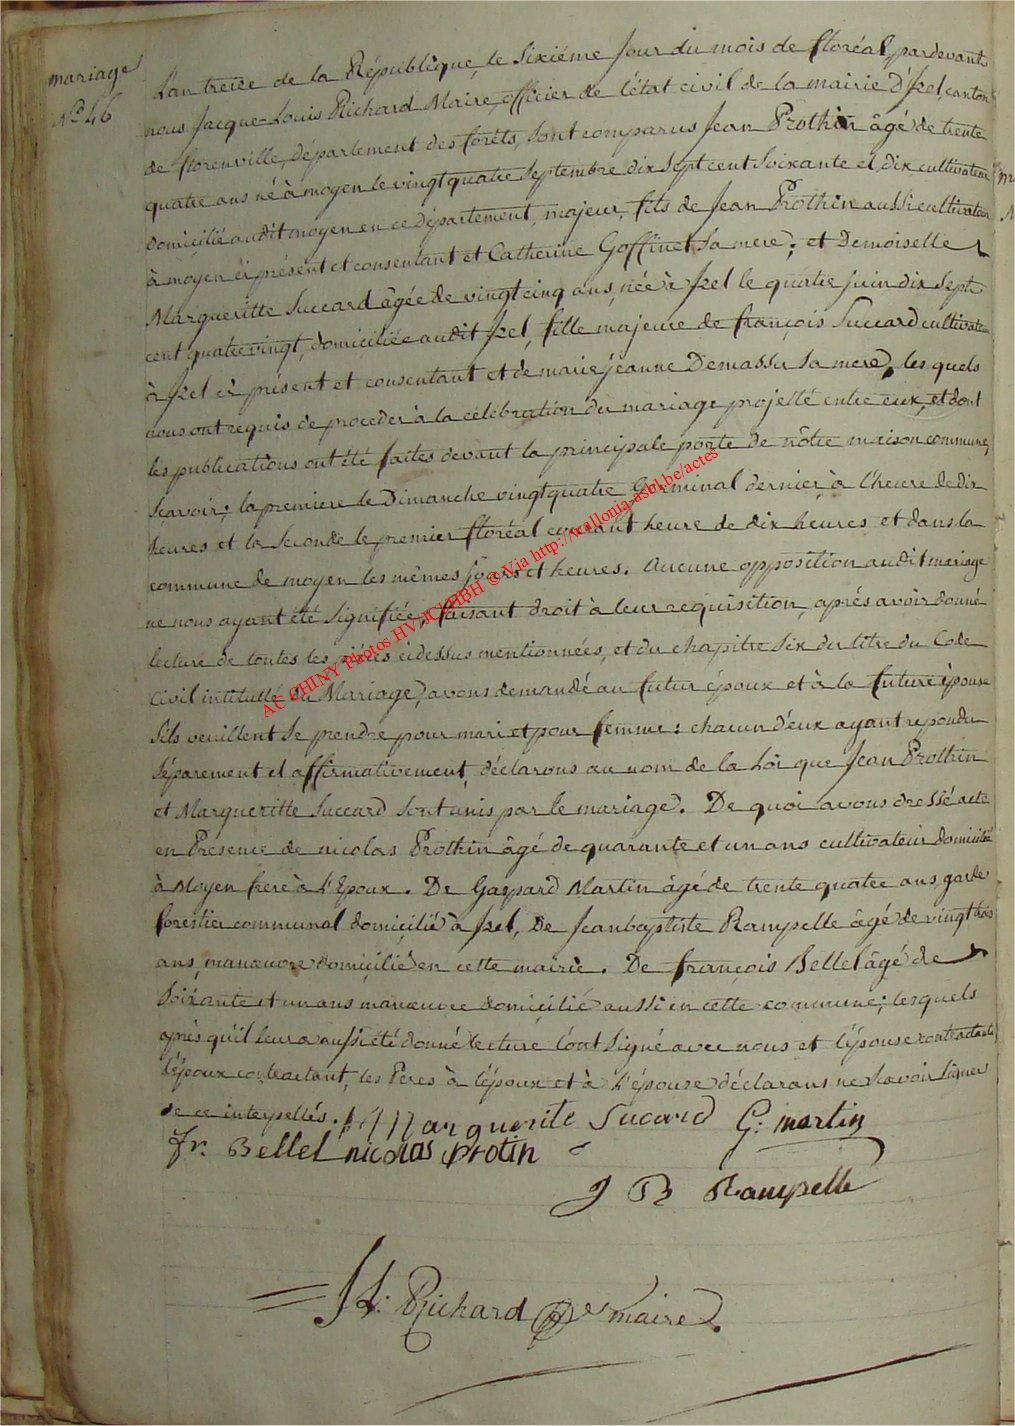 mariage
N° 46
L'an treize de la République, le Sixiéme Jour du mois de floréal, pardevant
nous Jacque-Louis Richard Maire, officier de l'état civil de la mairie d'Izel, canton
de florenville, département des forêts, sont comparus Jean Prothin âgé de trente
quatre ans né à moyen le vingt quatre Septembre dix Sept cent Soixante et dix cultivateur
domicilié audit moyen en ce département, majeur, fils de Jean Prothin aussi cultivateur
à moyen ci présent et consentant et Catherine Goffinet Sa mere; et Demoiselle
Margueritte Succard âgée de vingt cinq ans, née à Izel le quatre juin dix Sept
cent quatre vingt, domiciliée audit Izel, fille majeure de françois Succard cultivateur
à Izel ci présent et consentant et de marie jeanne Demasse sa mere, les quels
nous ont requis de proceder à la célébration du mariage projetté entre eux, et dont
les publications ont été faites devant la principale porte de nôtre maison commune,
Sçavoir; la premiere le Dimanche vingt quatre Germinal dernier, à l'heure de dix
heures et la Seconde le premier floréal courant heure de dix heures et dans la
commune de moyen les mêmes jours et heures. Aucune opposition audit mariage
ne nous ayant été Signifiée, faisant droit à leur requisition, aprés avoir donné
lecture de toutes les piéces cidessus mentionnées, et du chapitre Six du titre du Code
Civil intitullé du Mariage, avons demandé au futur époux et à la future épouse
S'ils veuillent Se prendre pour mari et pour femme: chacun d'eux ayant repondu
Séparement et affirmativement, déclarons au nom de la Loi que Jean Prothin
et Margueritte Succard Sont unis par le mariage. De quoi avons dressé acte
en Présence de nicolas Prothin âgé de quarante et un ans cultivateur domicilié
à Moyen frere à l'Epoux. De Gaspard Martin âgé de trente quatre ans, garde
forestier communal domicilié à Izel, De Jean baptiste Rampelle âgé de vingt trois
ans, manœuvre domicilié en cette mairie. De françois Bellel âgé de
Soixante et un ans manœuvre domicilié aussi en cette commune; lesquels
aprés qu'il leur a aussi été donné lecture l'ont Signé avec nous et l'épouse contractante,
l'époux contractant, les Peres à l'époux et à l'épouse déclarans ne Savoir Signer
de ce interpellés.
Marguerite Sucard G: martin
fr. Bellel nicolas protin
J B Rampelle
JL: Richard maire
AC CHINY Photos HV JCl HBH © Via http://wallonia-asbl.be/actes